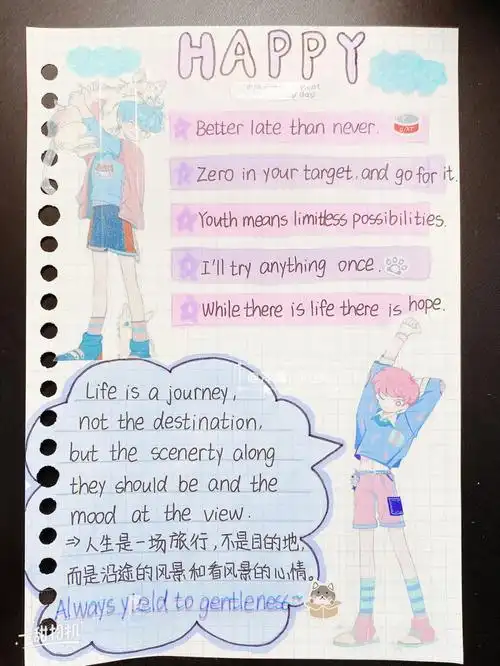 HAPPY
Better late than never.
Zero in your target.and go for it.
Youth means limitless possibilities.
I'll try anything once.
While there is life there is hope.
Life is a journey,
not the destination,
but the scenerty along
they should be and the
mood at the view.
⇒人生是一场旅行,不是目的地,
而是沿途的风景和看风景的心情。
Always yield to gentleness